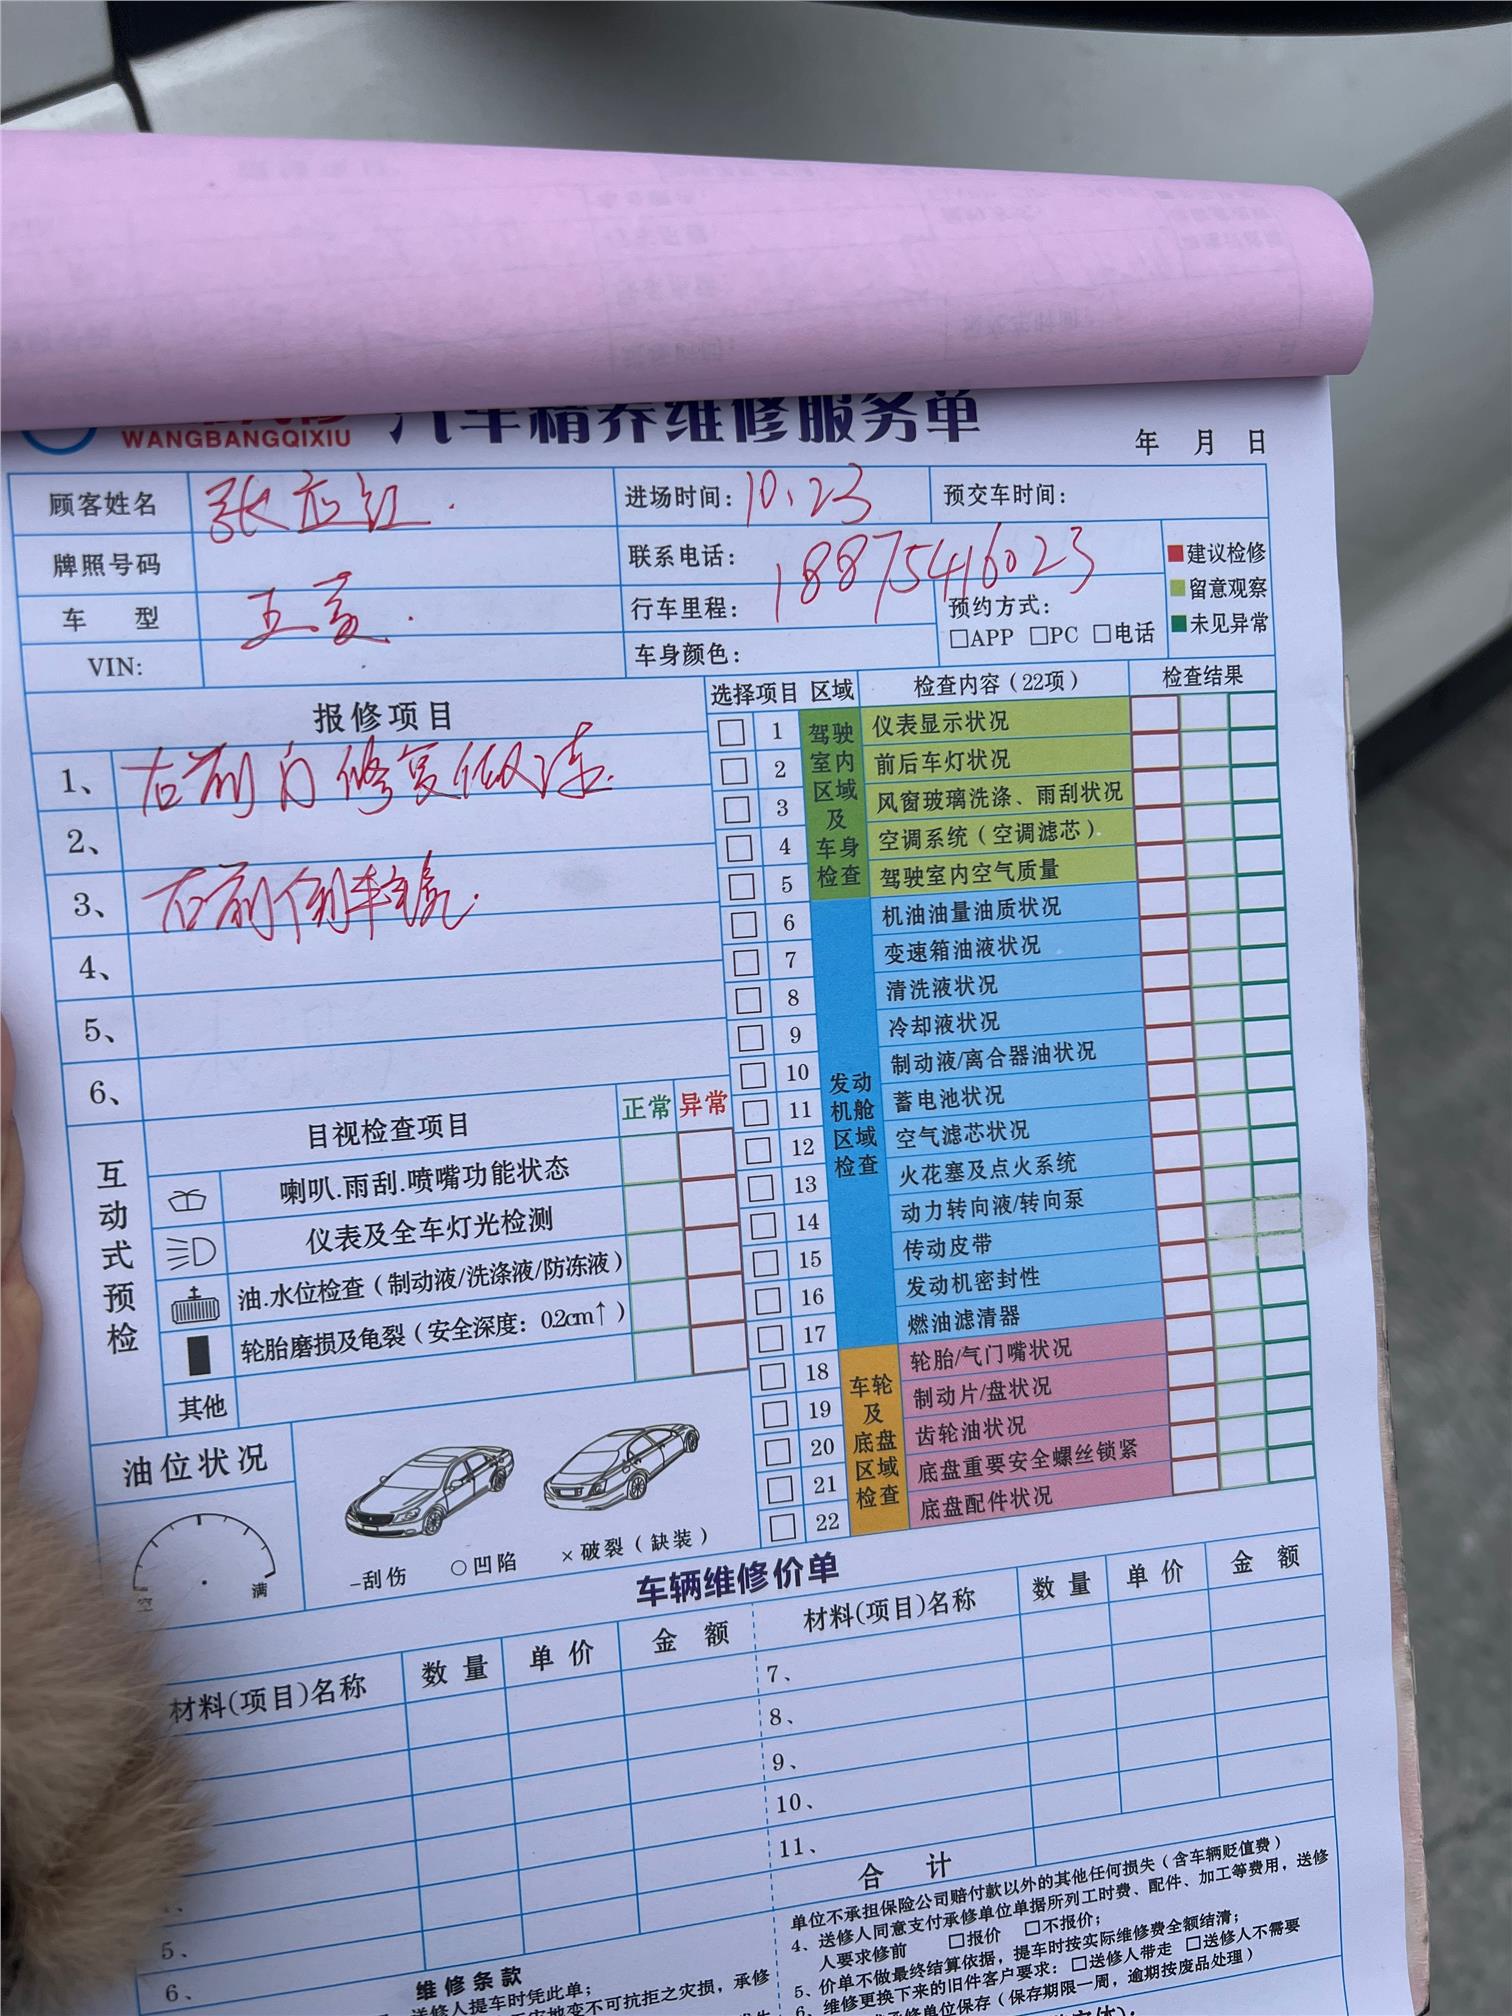 WANGBANGQIXIU 汽车精养维修服务单
年 月 日
顾客姓名 张应红. 进场时间：10.23 预交车时间：
牌照号码 联系电话：18875416023
车 型 五菱. 行车里程： 预约方式：
□APP □PC □电话
建议检修
留意观察
未见异常
VIN: 车身颜色：
报修项目
1、右前门修复做漆.
2、
3、右前倒车镜.
4、
5、
6、
选择项目 区域 检查内容（22项） 检查结果
驾驶室内区域及车身检查
1 仪表显示状况
2 前后车灯状况
3 风窗玻璃洗涤、雨刮状况
4 空调系统（空调滤芯）
5 驾驶室内空气质量
发动机舱区域检查
6 机油油量油质状况
7 变速箱油液状况
8 清洗液状况
9 冷却液状况
10 制动液/离合器油状况
11 蓄电池状况
12 空气滤芯状况
13 火花塞及点火系统
14 动力转向液/转向泵
15 传动皮带
16 发动机密封性
17 燃油滤清器
车轮及底盘区域检查
18 轮胎/气门嘴状况
19 制动片/盘状况
20 齿轮油状况
21 底盘重要安全螺丝锁紧
22 底盘配件状况
互动式预检
目视检查项目 正常 异常
喇叭.雨刮.喷嘴功能状态
仪表及全车灯光检测
油.水位检查（制动液/洗涤液/防冻液）
轮胎磨损及龟裂（安全深度：0.2cm↑）
其他
油位状况
空 满
-刮伤 ○凹陷 ×破裂（缺装）
车辆维修价单
材料(项目)名称 数量 单价 金 额 材料(项目)名称 数量 单价 金 额
7、
8、
9、
10、
11、
5、
6、
合 计
维修条款
送修人提车时凭此单；
不可抗拒之灾损，承修
单位不承担保险公司赔付款以外的其他任何损失（含车辆贬值费）
4、送修人同意支付承修单位单据所列工时费、配件、加工等费用，送修
人要求修前 □报价 □不报价；
5、价单不做最终结算依据，提车时按实际维修费全额结清；
6、维修更换下来的旧件客户要求：□送修人带走 □送修人不需要
承修单位保存（保存期限一周，逾期按废品处理）